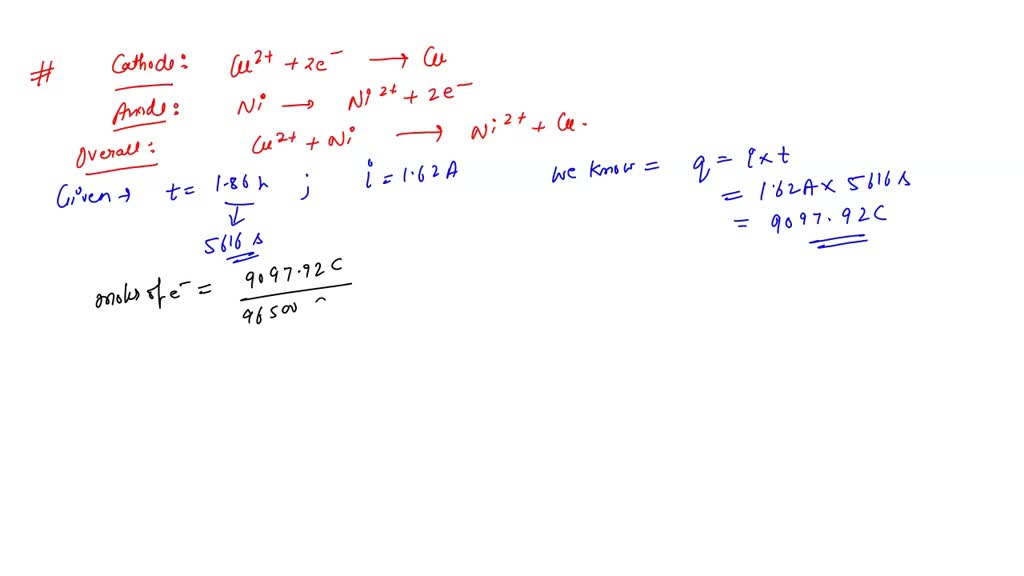 # Cathode: Cu²⁺ + 2e⁻ → Cu
Anode: Ni → Ni²⁺ + 2e⁻
Overall: Cu²⁺ + Ni → Ni²⁺ + Cu.
Given → t = 1.86 h ; i = 1.62A
↓
5616 s
we know = q = i x t
= 1.62A x 5616 s
= 9097.92C
moles of e⁻ = 9097.92 C
96500